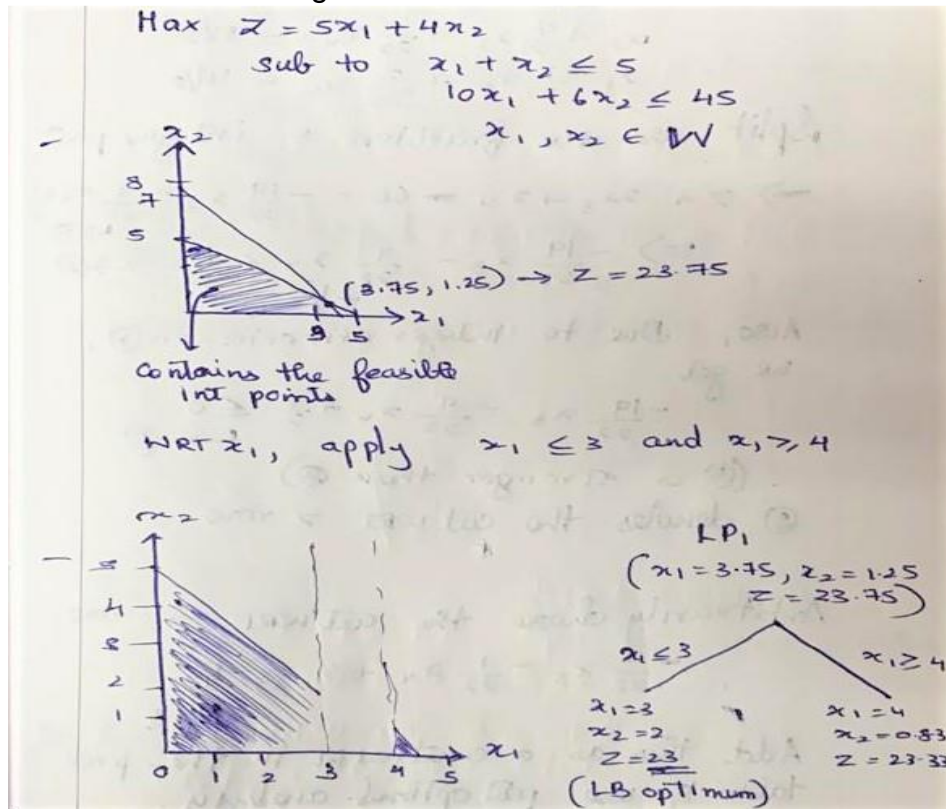 Max Z = 5x₁ + 4x₂
sub to x₁ + x₂ ≤ 5
10x₁ + 6x₂ ≤ 45
x₁, x₂ ∈ W
x₂
8
7
5
(3.75, 1.25) → Z = 23.75
3 5 x₁
Contains the feasible
int points
WRT x₁, apply x₁ ≤ 3 and x₁ ≥ 4
x₂
5
4
3
2
1
0 1 2 3 4 5 x₁
LP₁
(x₁ = 3.75, x₂ = 1.25
Z = 23.75)
x₁ ≤ 3 x₁ ≥ 4
x₁ = 3 x₁ = 4
x₂ = 2 x₂ = 0.83
Z = 23 Z = 23.33
(LB optimum)